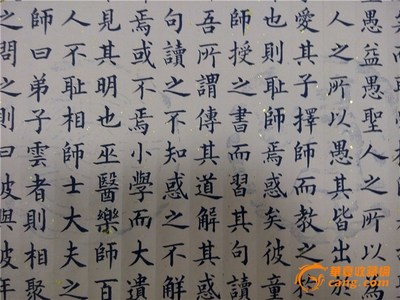 愚益愚聖人之所以為
人之所以愚其皆出
愛其子擇師而教之於
也則恥師焉惑矣彼童
師授之書而習其句讀
吾所謂傳其道解其惑
句讀之不知惑之不解
焉或不焉小學而大遺
見其明也巫醫樂師百
人不恥相師士大夫之
師曰弟子雲者則相聚
之問之則曰彼與彼年
华夏收藏网